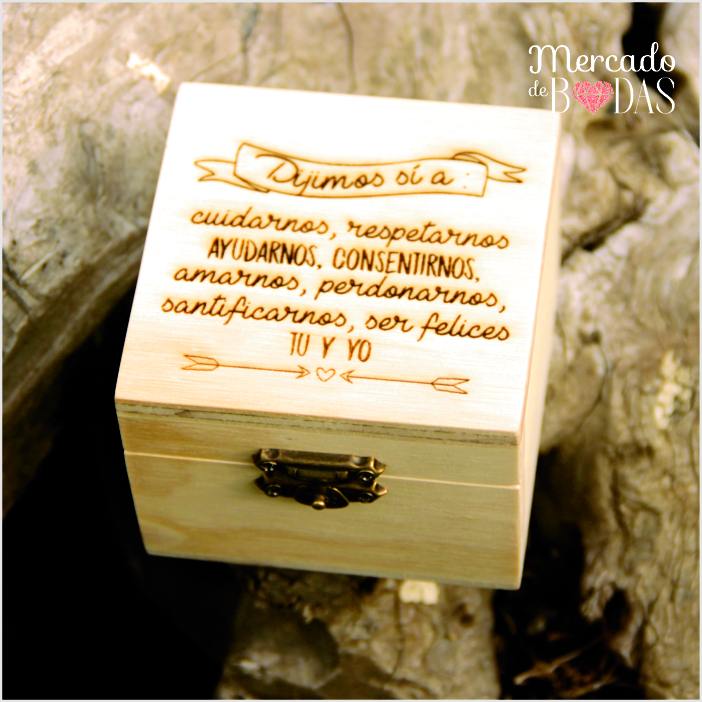 Mercado
de BODAS
Dijimos sí a :
cuidarnos, respetarnos
AYUDARNOS, CONSENTIRNOS,
amarnos, perdonarnos,
santificarnos, ser felices
TU Y YO